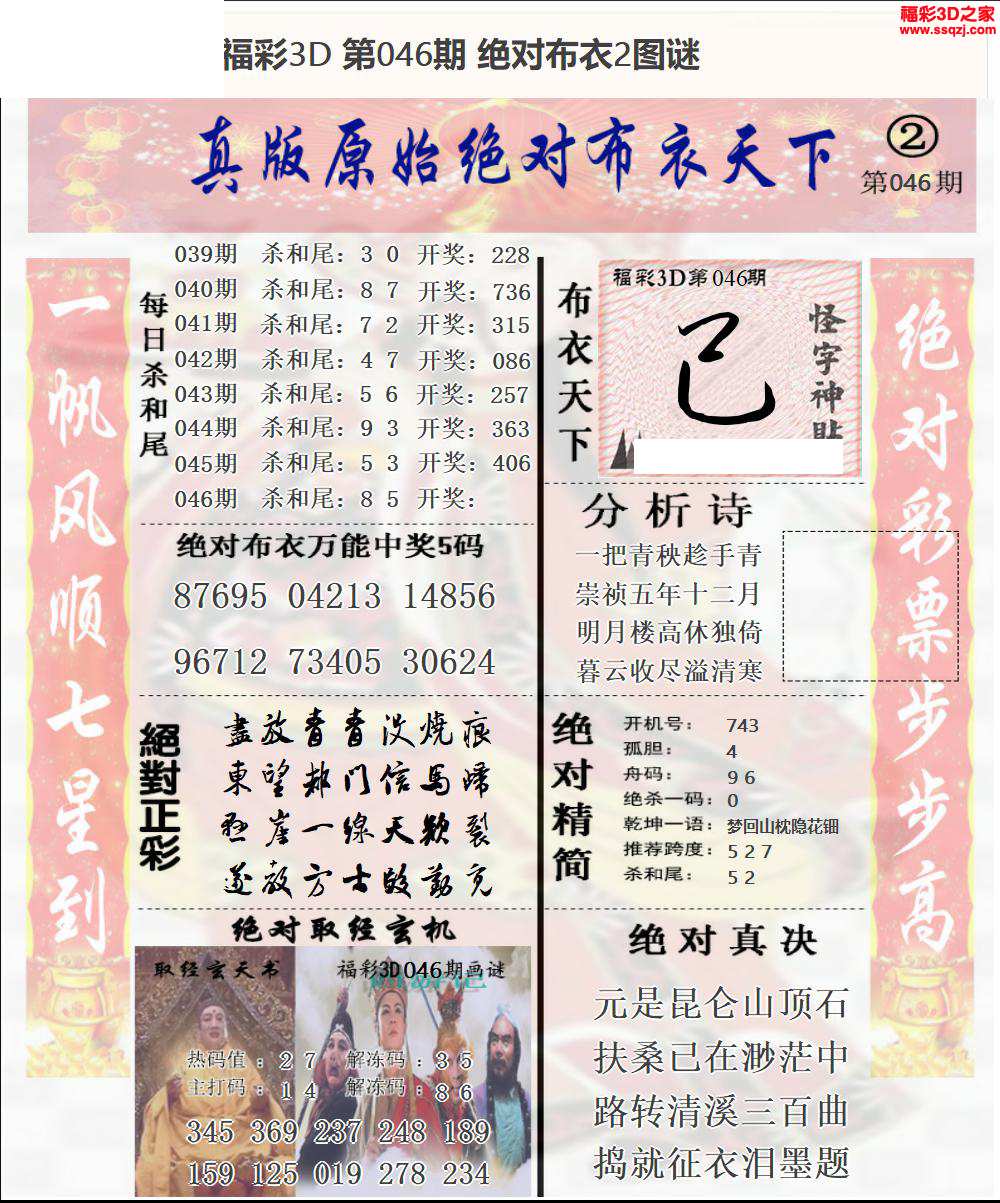 福彩3D之家
www.ssqzj.com
福彩3D 第046期 绝对布衣2图谜
真版原始绝对布衣天下
②
第046期
一帆风顺七星到
每日杀和尾
039期 杀和尾：3 0 开奖：228
040期 杀和尾：8 7 开奖：736
041期 杀和尾：7 2 开奖：315
042期 杀和尾：4 7 开奖：086
043期 杀和尾：5 6 开奖：257
044期 杀和尾：9 3 开奖：363
045期 杀和尾：5 3 开奖：406
046期 杀和尾：8 5 开奖：
绝对布衣万能中奖5码
87695 04213 14856
96712 73405 30624
絕對正彩
盡放青青没燒痕
東望都门信馬歸
懸崖一線天欲裂
遂教方士殷勤克
绝对取经玄机
取经玄天书
福彩3D046期画谜
热码值：2 7 解冻码：3 5
主打码：1 4 解冻码：8 6
345 369 237 248 189
159 125 019 278 234
布衣天下
福彩3D第046期
己
怪字神
分析诗
一把青秧趁手青
崇祯五年十二月
明月楼高休独倚
暮云收尽溢清寒
绝对精简
开机号： 743
孤胆： 4
舟码： 9 6
绝杀一码：0
乾坤一语：梦回山枕隐花钿
推荐跨度：5 2 7
杀和尾： 5 2
绝对真决
元是昆仑山顶石
扶桑已在渺茫中
路转清溪三百曲
捣就征衣泪墨题
绝对彩票步步高